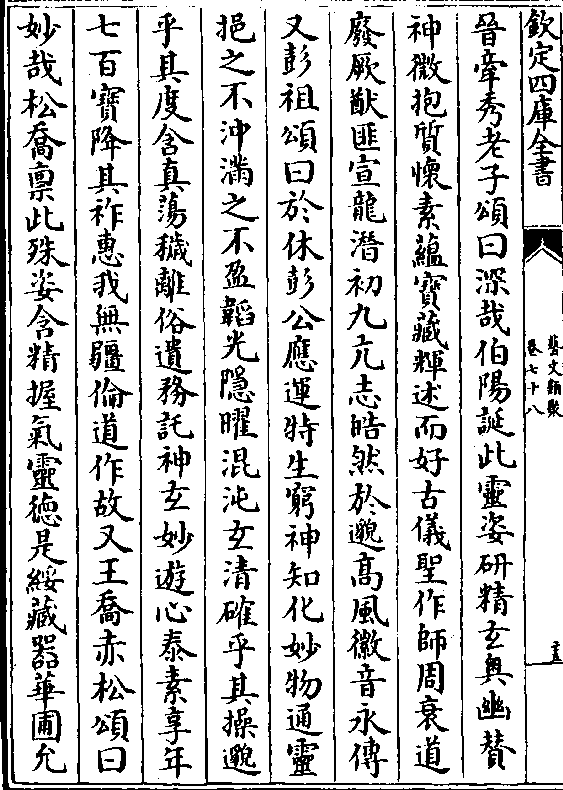 欽定四庫全書
藝文類聚
卷七十八
晉牽秀老子頌曰深哉伯陽誕此靈姿研精玄奥幽賛
神微抱質懷素蘊寶藏輝述而好古儀聖作師周衰道
廢厥猷匪宣龍潛初九亢志皓然於邈髙風徽音永傳
又彭祖頌曰於休彭公應運特生窮神知化妙物通靈
挹之不沖滿之不盈韜光隱曜混沌玄清確乎其操邈
乎其度含真蕩穢離俗遺務託神玄妙遊心泰素享年
七百寶降其祚惠我無疆倫道作故又王喬赤松頌曰
妙哉松喬禀此殊姿含精握氣靈徳是綏藏器華圃允